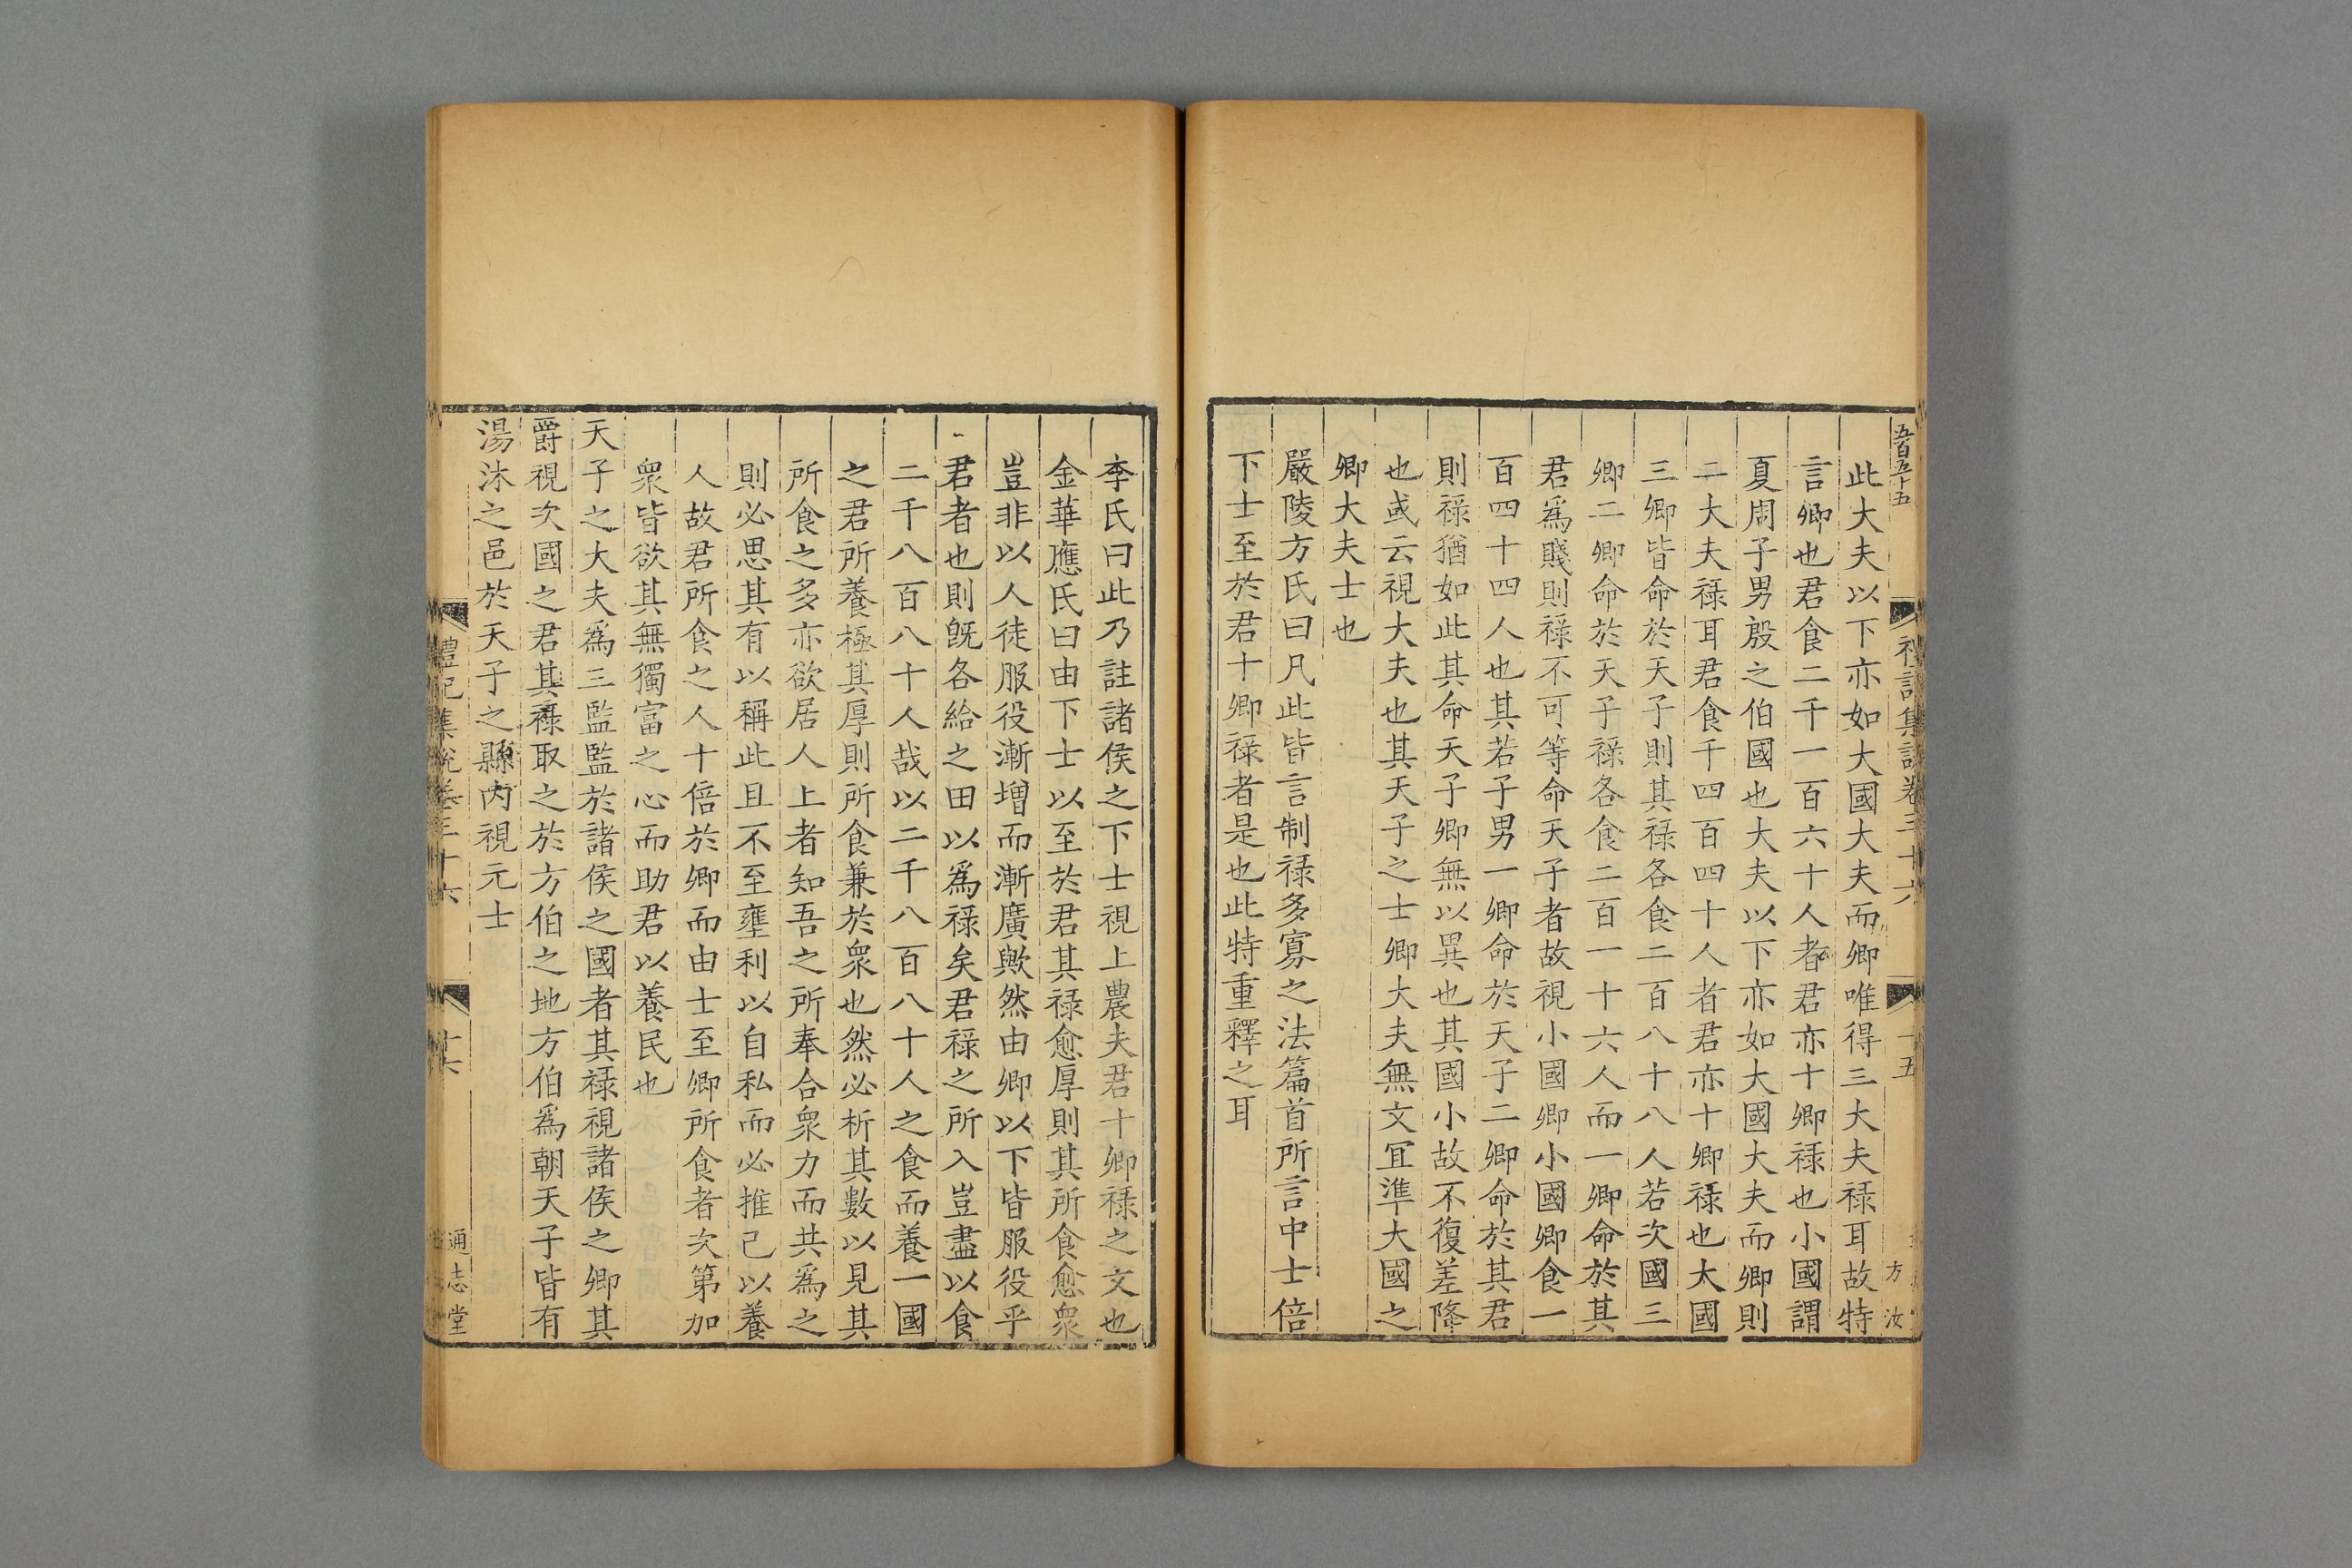 五百九十五
禮記集說卷三十六
十五
方汝
此大夫以下亦如大國大夫而卿唯得三大夫祿耳故特
言卿也君食二千一百六十人者君亦十卿祿也小國謂
夏周子男殷之伯國也大夫以下亦如大國大夫而卿則
二大夫祿耳君食千四百四十人者君亦十卿祿也大國
三卿皆命於天子則其祿各食二百八十八人若次國三
卿二卿命於天子祿各食二百一十六人而一卿命於其
君爲賤則祿不可等命天子者故視小國卿小國卿食一
百四十四人也其若子男一卿命於天子二卿命於其君
則祿猶如此其命天子卿無以異也其國小故不復差降
也或云視大夫也其天子之士卿大夫無文宜準大國之
卿大夫士也
嚴陵方氏曰凡此皆言制祿多寡之法篇首所言中士倍
下士至於君十卿祿者是也此特重釋之耳
李氏曰此乃註諸侯之下士視上農夫君十卿祿之文也
金華應氏曰由下士以至於君其祿愈厚則其所食愈衆
豈非以人徒服役漸增而漸廣歟然由卿以下皆服役乎
君者也則旣各給之田以爲祿矣君祿之所入豈盡以食
二千八百八十人哉以二千八百八十人之食而養一國
之君所養極其厚則所食兼於衆也然必析其數以見其
所食之多亦欲居人上者知吾之所奉合衆力而共爲之
則必思其有以稱此且不至壅利以自私而必推己以養
人故君所食之人十倍於卿而由士至卿所食者次第加
衆皆欲其無獨富之心而助君以養民也
天子之大夫爲三監監於諸侯之國者其祿視諸侯之卿其
爵視次國之君其祿取之於方伯之地方伯爲朝天子皆有
湯沐之邑於天子之縣內視元士
禮記集說卷三十六
十六
通志堂